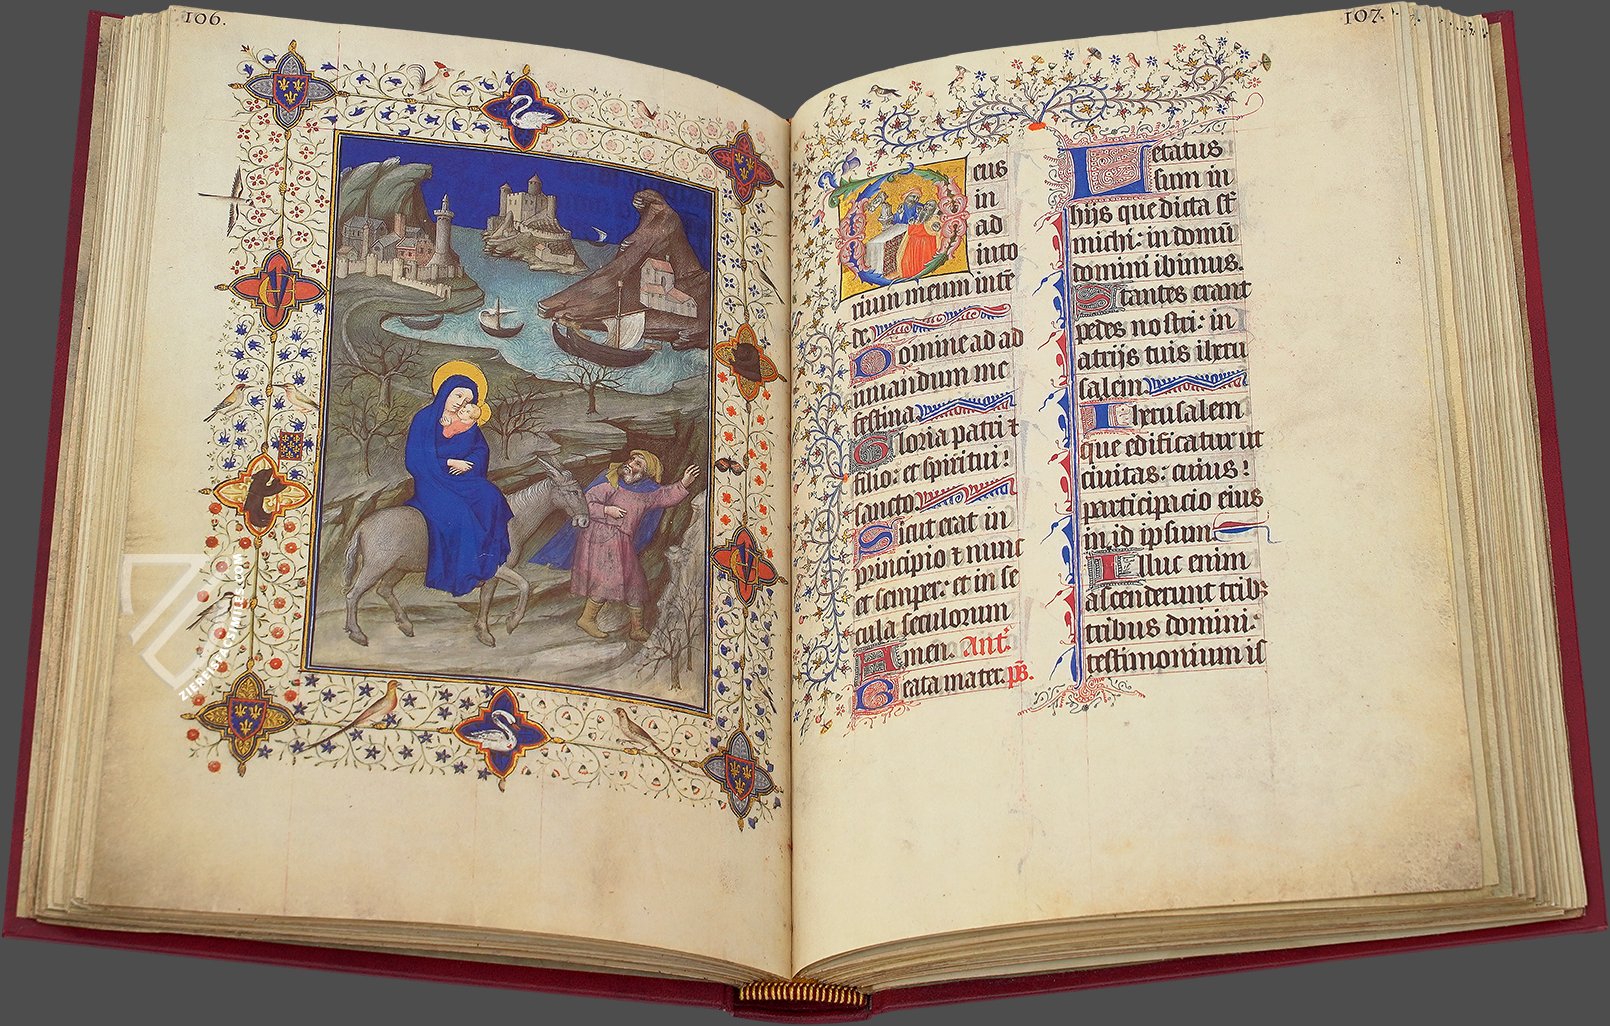 106.
107.
Deus
in
ad
iuto
rium meum inte
de.
Domine ad ad
iuuandum me
festina
Gloria patri et
filio: et spiritui
sancto
Sicut erat in
principio et nunc
et semper: et in se
cula seculorum
Amen. Ant.
Beata mater. ps.
Letatus
sum in
hijs que dicta st
michi: in domu
domini ibimus.
Stantes erant
pedes nostri: in
atrijs tuis iheru
salem
Iherusalem
que edificatur ut
ciuitas: cuius
participacio eius
in id ipsum
Illuc enim
ascenderunt trib
tribus domini:
testimonium is
ZIEREIS FACSIMILES.COM